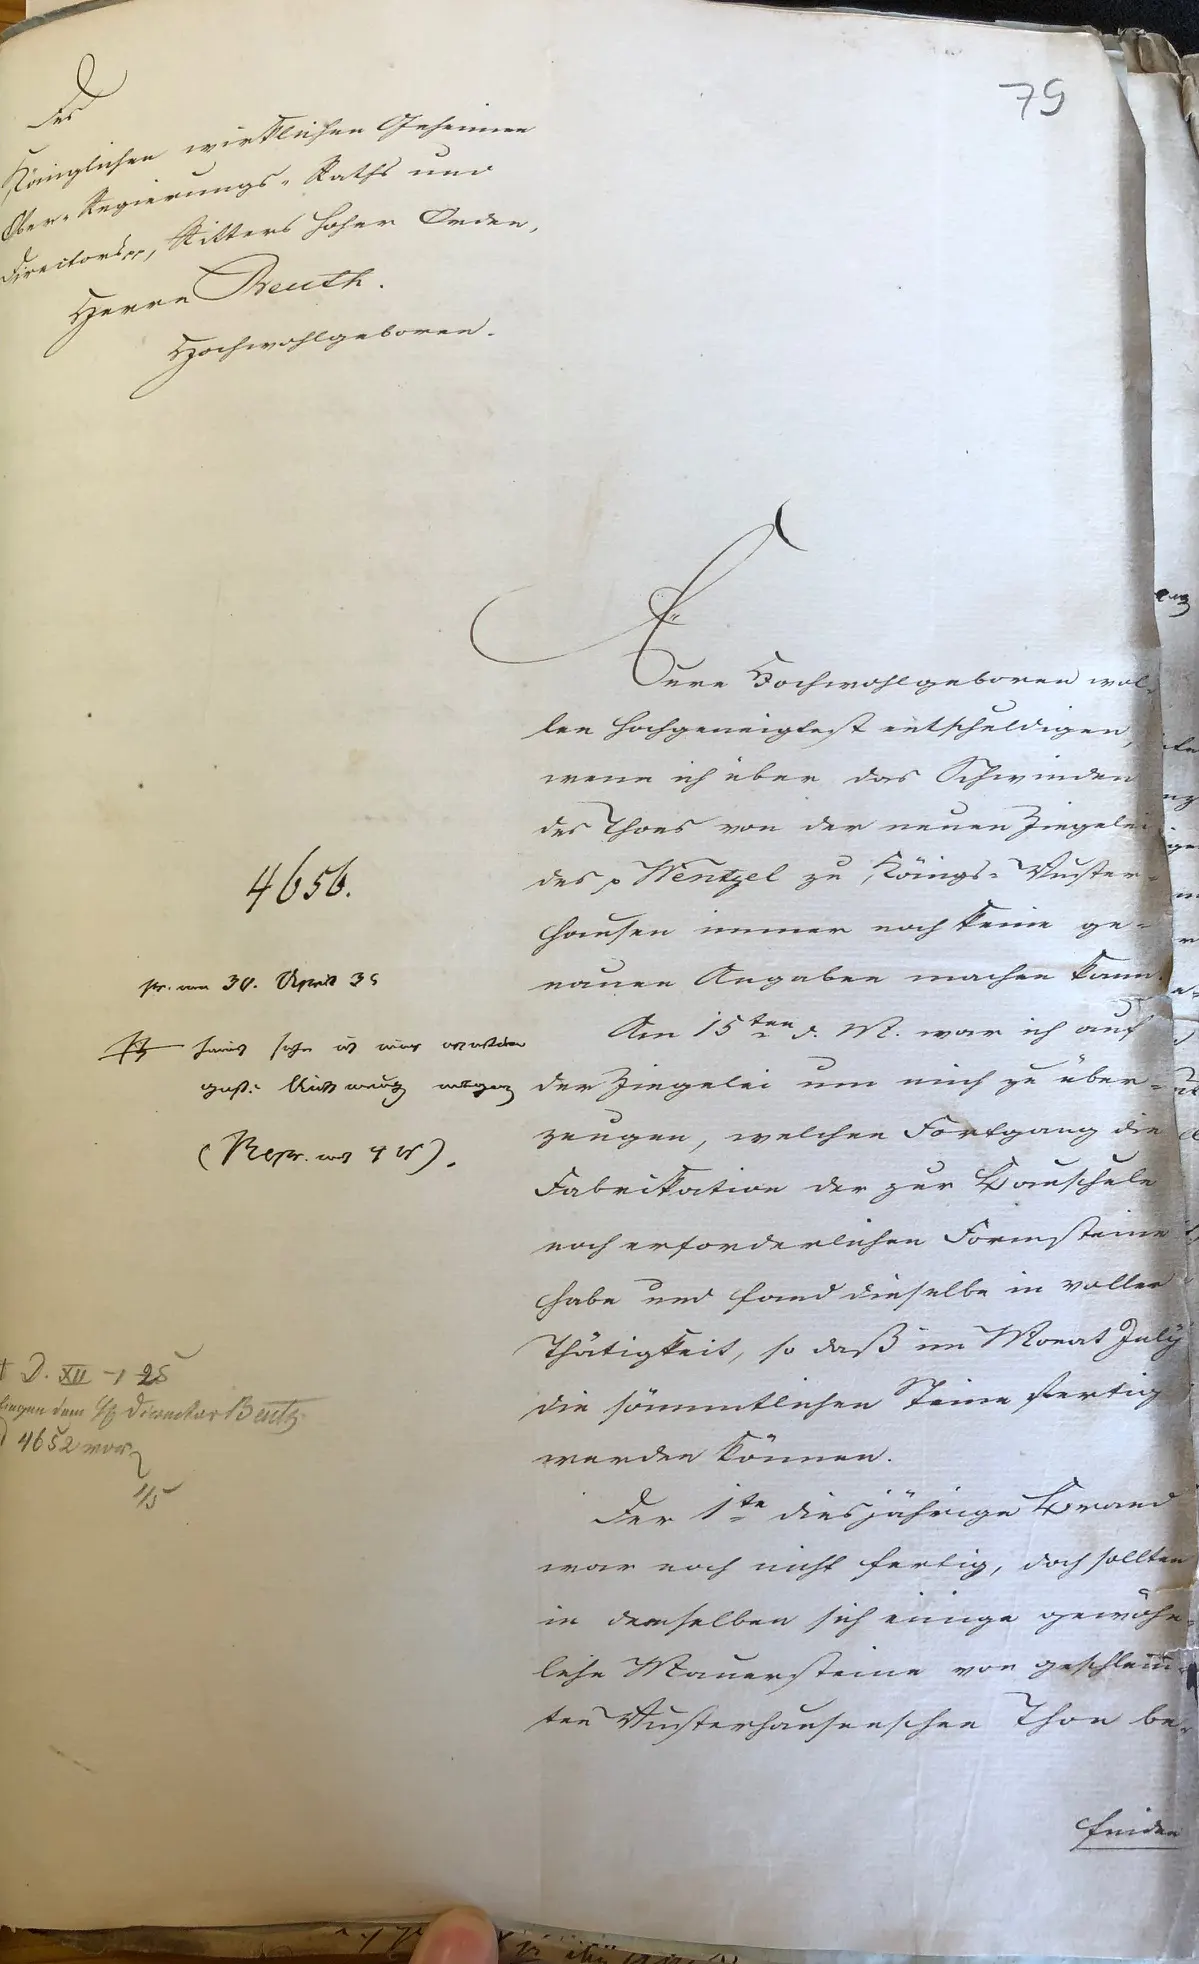 79
Des
Königlichen wirklichen Geheimen
Ober-Regierungs-Raths und
Directors pp, Ritters hoher Orden,
Herrn Beuth.
Hochwohlgeboren.
Eure Hochwohlgeboren wol-
len hochgeneigtest entschuldigen,
wenn ich über das Schwinden
des Thons von der neuen Ziegelei
des p Wentzel zu Königs-Wuster-
hausen immer noch keine ge-
nauen Angaben machen kann.
Am 15ten d. M. war ich auf
der Ziegelei um mich zu über-
zeugen, welchen Fortgang die
Fabrikation der zur Bauschule
noch erforderlichen Formsteine
habe und fand dieselbe in voller
Thätigkeit, so daß im Monat July
die sämmtlichen Steine fertig
werden können.
Der 1te diesjährige Brand
war noch nicht fertig, doch sollten
in demselben sich einige gewöhn-
liche Mauersteine von geschlemm-
ten Wusterhausenschen Thon be-
finden
4656.
pr. am 30. April 35
D. XII
dem Director Beuth
4652 vor
1/5